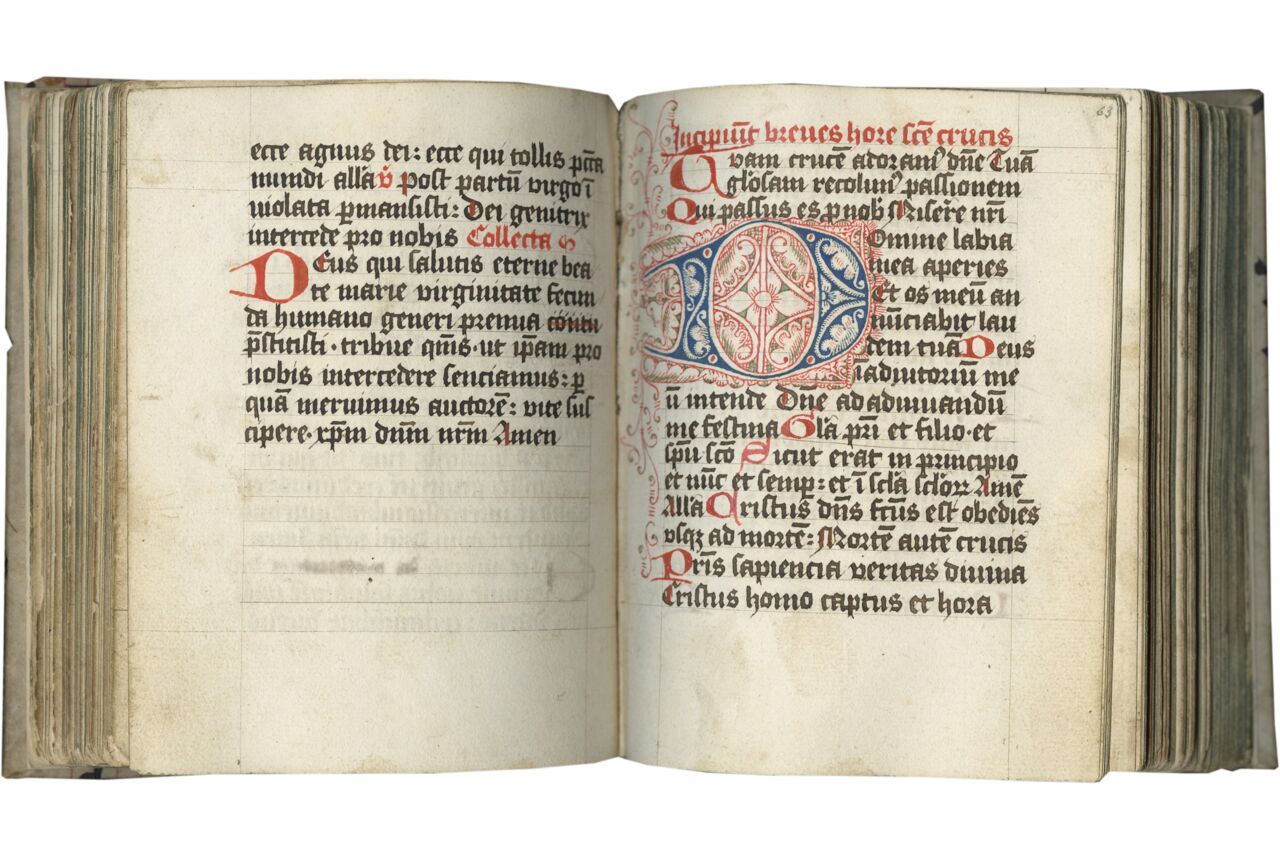 ecce agnus dei: ecce qui tollis pcc̄a
mundi all̄a v̄ post partū virgo ī
uiolata p̄mansisti: Dei genitrix
intercede pro nobis Collecta
DEus qui salutis eterne bea
te marie virginitate fecun
da humano generi premia contu
p̄stitisti · tribue qm̄s · ut ip̄am pro
nobis intercedere senciamus: p̄
quā meruimus auctorē: vite sus
cipere · xp̄m dnm̄ nrm̄ Amen
63
Incipiūt breues hore sc̄e crucis
Tuam crucē adoramꝰ dn̄e Tuā
glōsam recolimꝰ passionem
Qui passus es p nob̄ Miserēre nr̄i
Domine labia
mea aperies
Et os meū an
nūciabit lau
dem tuā Deus
ī adiutoriū me
ū intende Dn̄e ad adiuuandū
me festina Glā pr̄i et filio · et
sp̄u sc̄o Sicut erat in principio
et nūc et semp̄: et ī sc̄la sc̄lorꝝ Amē
All̄a Cristus dn̄s fc̄us est obediēs
vsqꝫ ad mortē: Mortē autē crucis
Pr̄is sapiencia veritas diuina
Cristus homo captus et hora